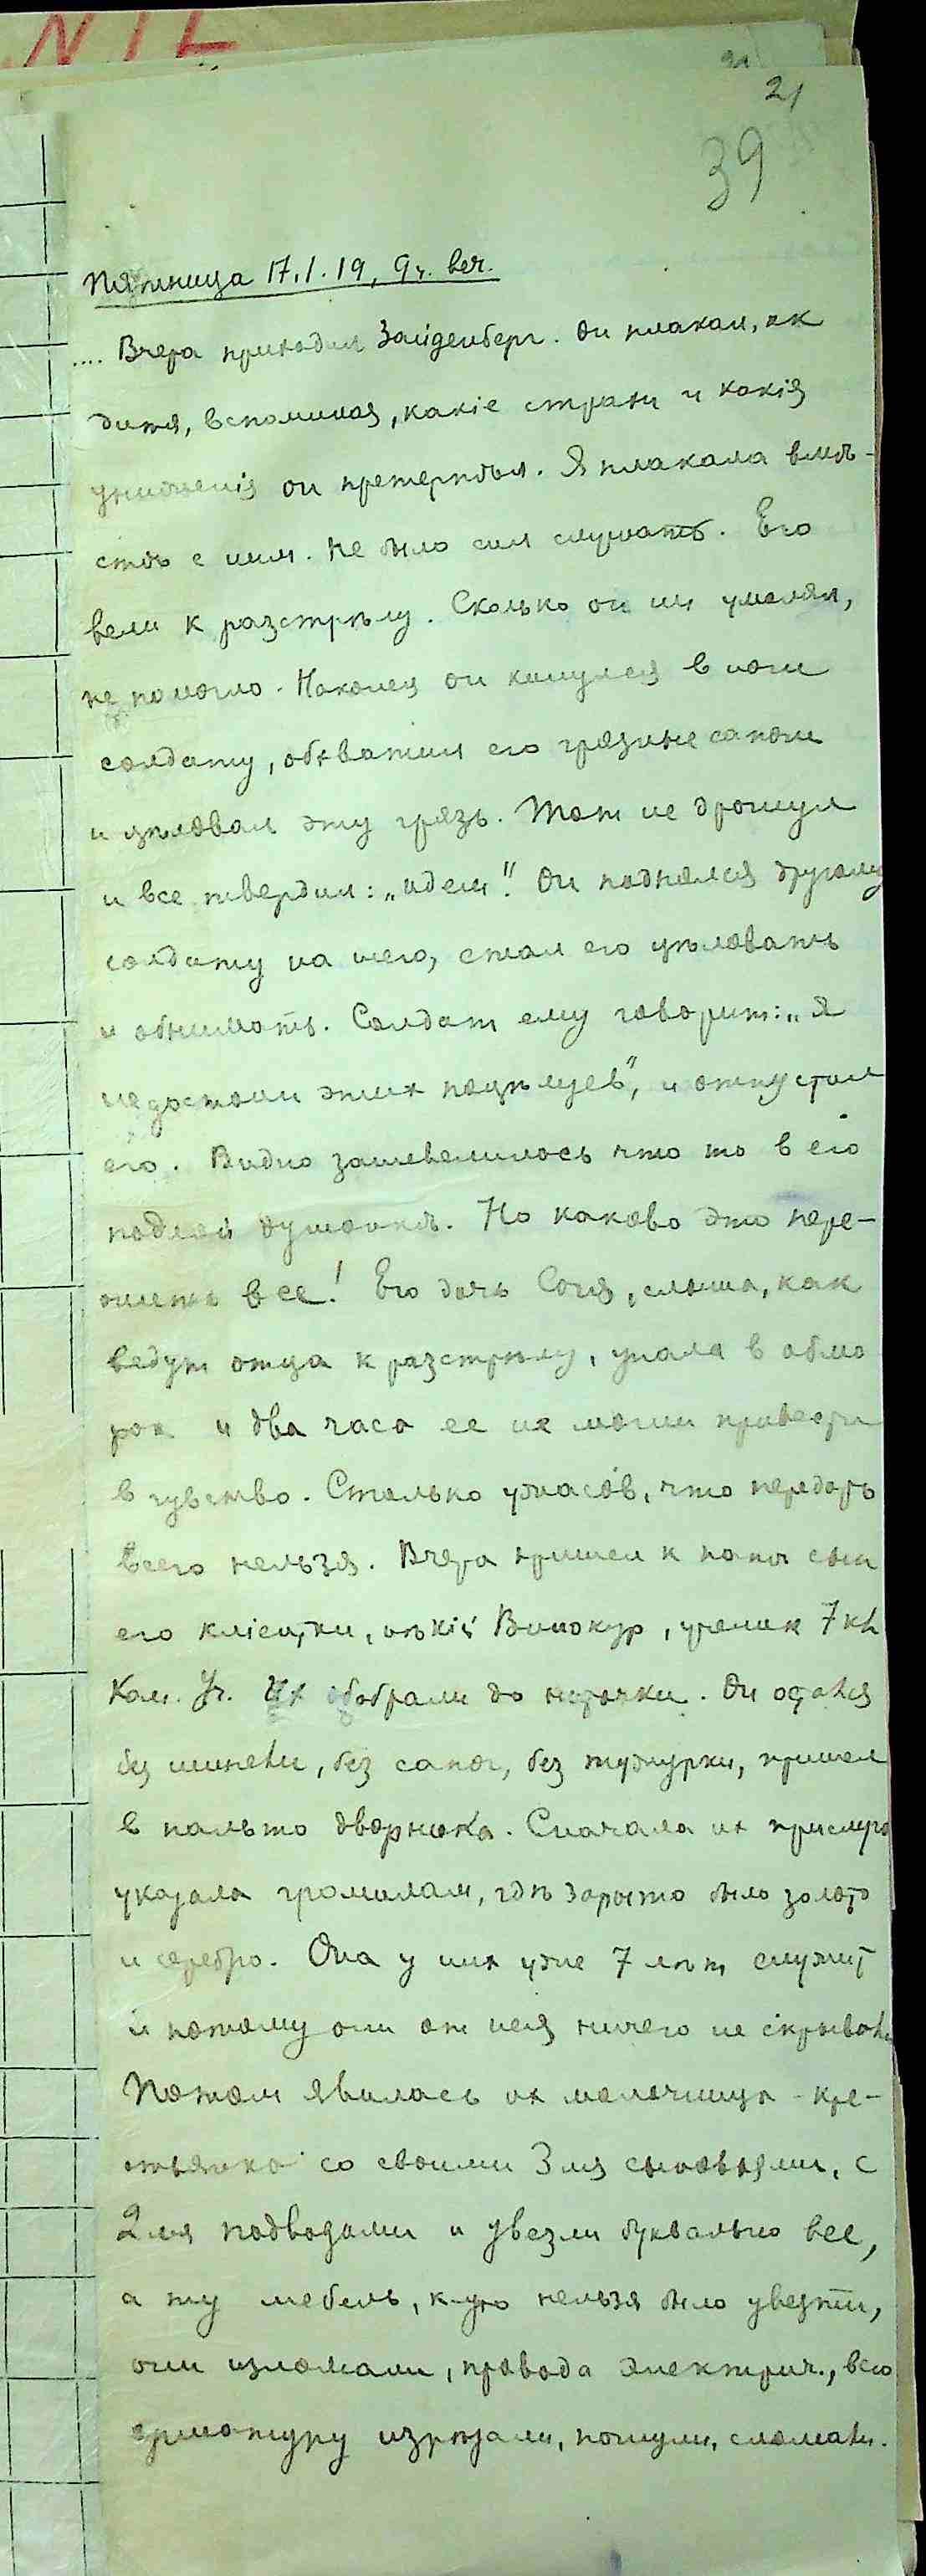 NIL
21
21
39
Пятница 17.I.19, 9ч. веч.
.... Вчера приходил Зайденберг. Он плакал, как
дитя, вспоминая, какіе страхи и какія
униженія он претерпѣл. Я плакала вмѣ-
стѣ с ним. Не было сил слушать. Его
вели к разстрѣлу. Сколько он ни умолял,
не помогло. Наконец он кинулся в ноги
солдату, обхватил его грязные сапоги
и цѣловал эту грязь. Тот не дрогнул
и все твердил: „идем“. Он поднялся другому
солдату на шею, стал его цѣловать
и обнимать. Солдат ему говорит: „Я
недостоин этих поцѣлуев“, и отпустил
его. Видно зашевелилось что то в его
подлой душонкѣ. Но каково это пере-
жить все! Его дочь Соня, слыша, как
ведут отца к разстрѣлу, упала в обмо
рок и два часа ее не могли привести
в чувство. Столько ужасов, что передать
всего нельзя. Вчера пришел к папѣ сын
его кліентки, нѣкій Винокур, ученик 7 кл
Ком. Уч. Их обобрали до ниточки. Он остался
без шинели, без сапог, без тужурки, пришел
в пальто дворника. Сначала их прислуга
указала громилам, гдѣ зарыто было золото
и серебро. Она у них уже 7 лѣт служит
и потому они от нея ничего не скрывали
Потом явилась их молочница - кре-
стьянка со своими 3мя сыновьями, с
2мя подводами и увезли буквально все,
а ту мебель, к-ую нельзя было увезти,
они изломали, провода электрич., всю
арматуру изрѣзали, погнули, сломали.